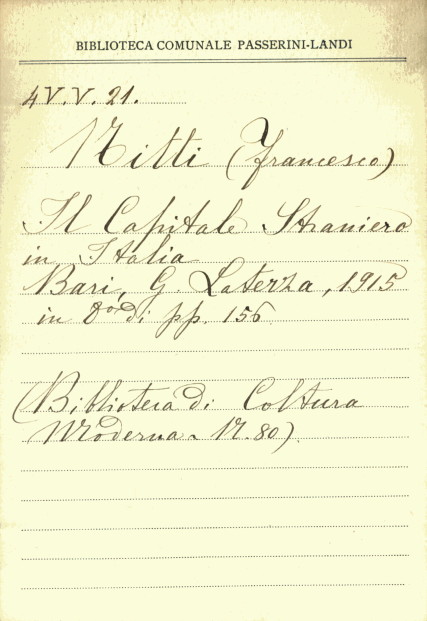 BIBLIOTECA COMUNALE PASSERINI-LANDI
4V.V.21.
Nitti (Francesco)
Il Capitale Straniero
in Italia
Bari, G. Laterza, 1915
in 8º di pp. 156
(Biblioteca di Coltura
Moderna - N. 80)